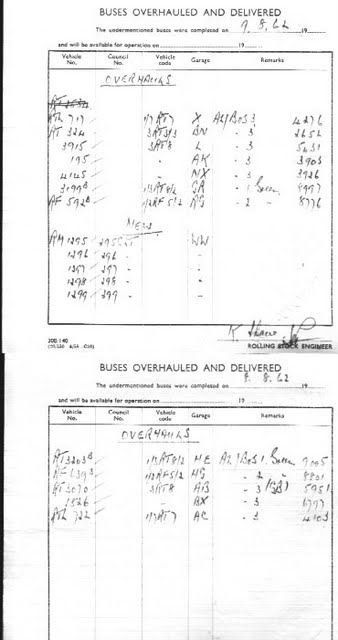 BUSES OVERHAULED AND DELIVERED
The undermentioned buses were completed on 7.8.62 19
and will be available for operation on 19
Vehicle No. Council No. Vehicle code Garage Remarks
OVERHAULS
RTL 717 1/7RT7 X 3 4276
RT 324 3RT3/3 BN - 3 2656
3915 3RT8 L - 3 5631
195 - AK - 3 3903
4145 - NX - 3 3926
3199 1/3RT8/2 GR 8997
RF 592 1/2RF5/2 RG - 2 - 8776
NEW
RM 1295 295CLT WW
1296 296 - -
1297 297 - -
1298 298 - -
1299 299 - -
ROLLING STOCK ENGINEER
BUSES OVERHAULED AND DELIVERED
The undermentioned buses were completed on 8.8.62 19
and will be available for operation on 19
Vehicle No. Council No. Vehicle code Garage Remarks
OVERHAULS
RT 3203 1/3RT8/2 HE 9005
RF 639 1/2RF5/2 HG - 2 - 8801
RT 3070 3RT8 AB - 3 5951
1526 - BX - 3 6797
RTL 722 1/7RT7 AC - 3 4103